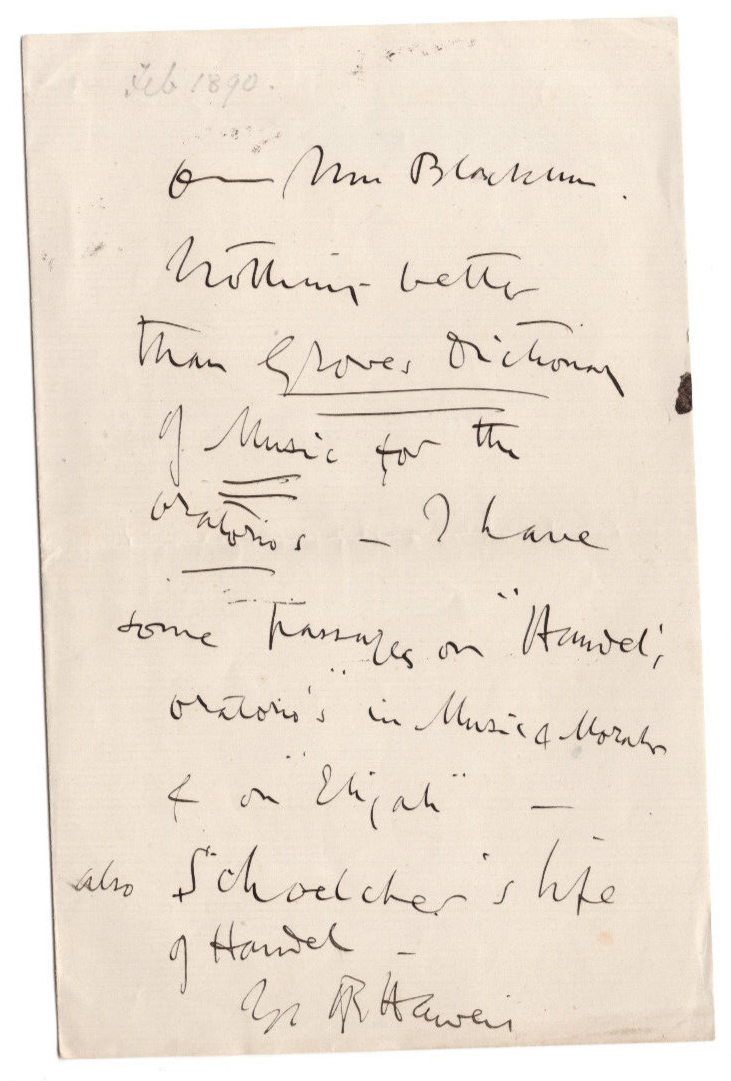 Feb 1890.
Blackburn.
Nothing better
than Groves Dictionary
of Music for the
oratorios — I have
some passages on "Handel's
oratorio's" in Music & Morals
& on "Elijah" —
also Schoelcher's life
of Handel —
HR Haweis